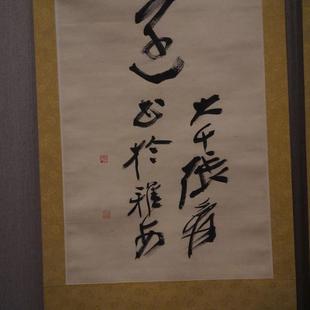 大千張爰
書於雅安